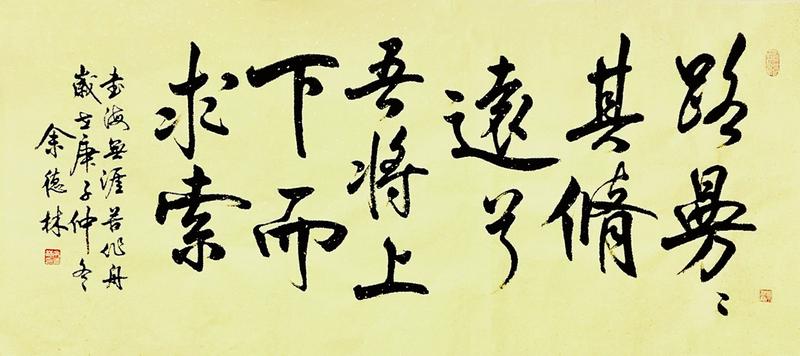 路曼〻
其脩
遠兮
吾将上
下而
求索
書海無涯苦作舟
歲在庚子仲冬
余德林